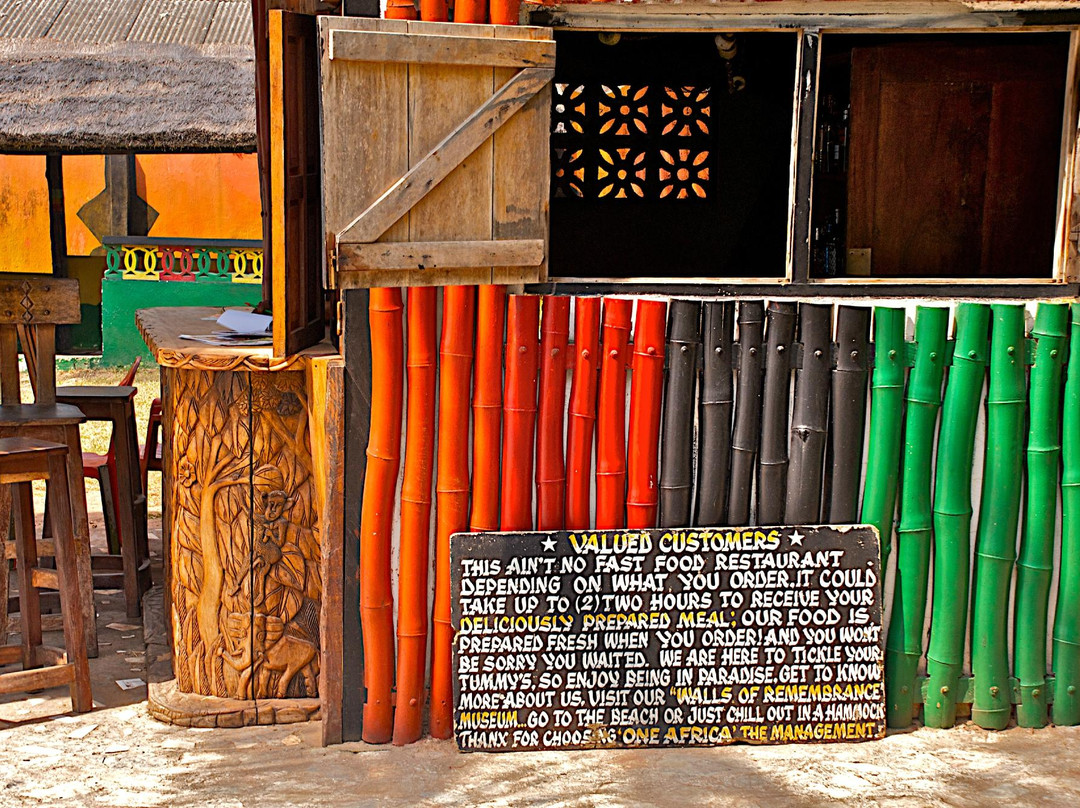 ★ VALUED CUSTOMERS ★
THIS AIN'T NO FAST FOOD RESTAURANT
DEPENDING ON WHAT YOU ORDER.IT COULD
TAKE UP TO (2) TWO HOURS TO RECEIVE YOUR
DELICIOUSLY PREPARED MEAL; OUR FOOD IS
PREPARED FRESH WHEN YOU ORDER! AND YOU WON'T
BE SORRY YOU WAITED. WE ARE HERE TO TICKLE YOUR
TUMMY'S, SO ENJOY BEING IN PARADISE. GET TO KNOW
MORE ABOUT US, VISIT OUR "WALLS OF REMEMBRANCE"
MUSEUM...GO TO THE BEACH OR JUST CHILL OUT IN A HAMMOCK
THANX FOR 'ONE AFRICA' THE MANAGEMENT.